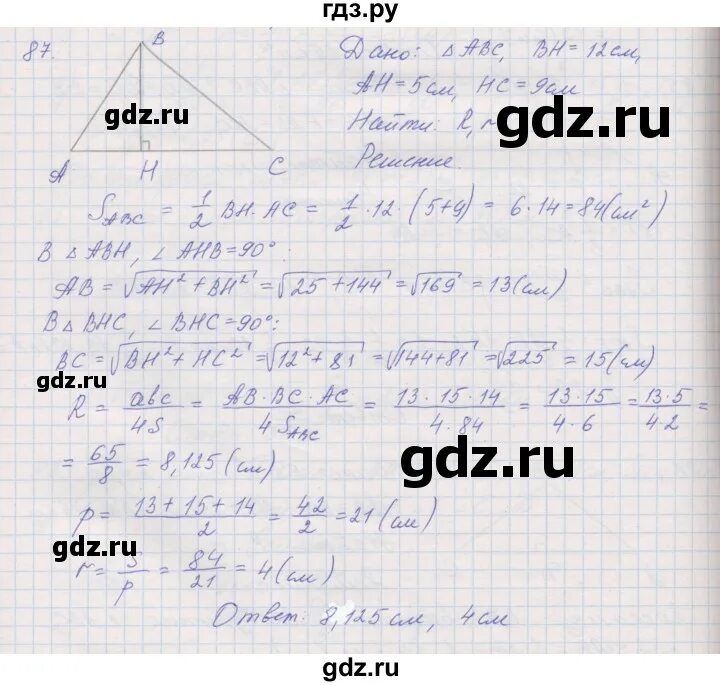 гдз.ру
87.
B
A
H
C
gdz.ru
Дано: △ ABC, BH = 12 см,
AH = 5 см, HC = 9 см
Найти: R,
gdz.ru
Решение.
S_ABC = 1/2 BH · AC = 1/2 · 12 · (5+9) = 6 · 14 = 84 (см²)
В △ ABH, ∠ AHB = 90° :
AB = √(AH² + BH²) = √(25 + 144) = √169 = 13 (см)
В △ BHC, ∠ BHC = 90° :
BC = √(BH² + HC²) = √(12² + 81) = √(144 + 81) = √225 = 15 (см)
gdz.ru
R = abc/4S = AB · BC · AC/4S_ABC = 13 · 15 · 14/4 · 84 = 13 · 15/4 · 6 = 13 · 5/4 · 2 =
= 65/8 = 8,125 (см)
gdz.ru
p = 13 + 15 + 14/2 = 42/2 = 21 (см)
gdz.ru
r = S/p = 84/21 = 4 (см)
Ответ: 8,125 см, 4 см
gdz.ru